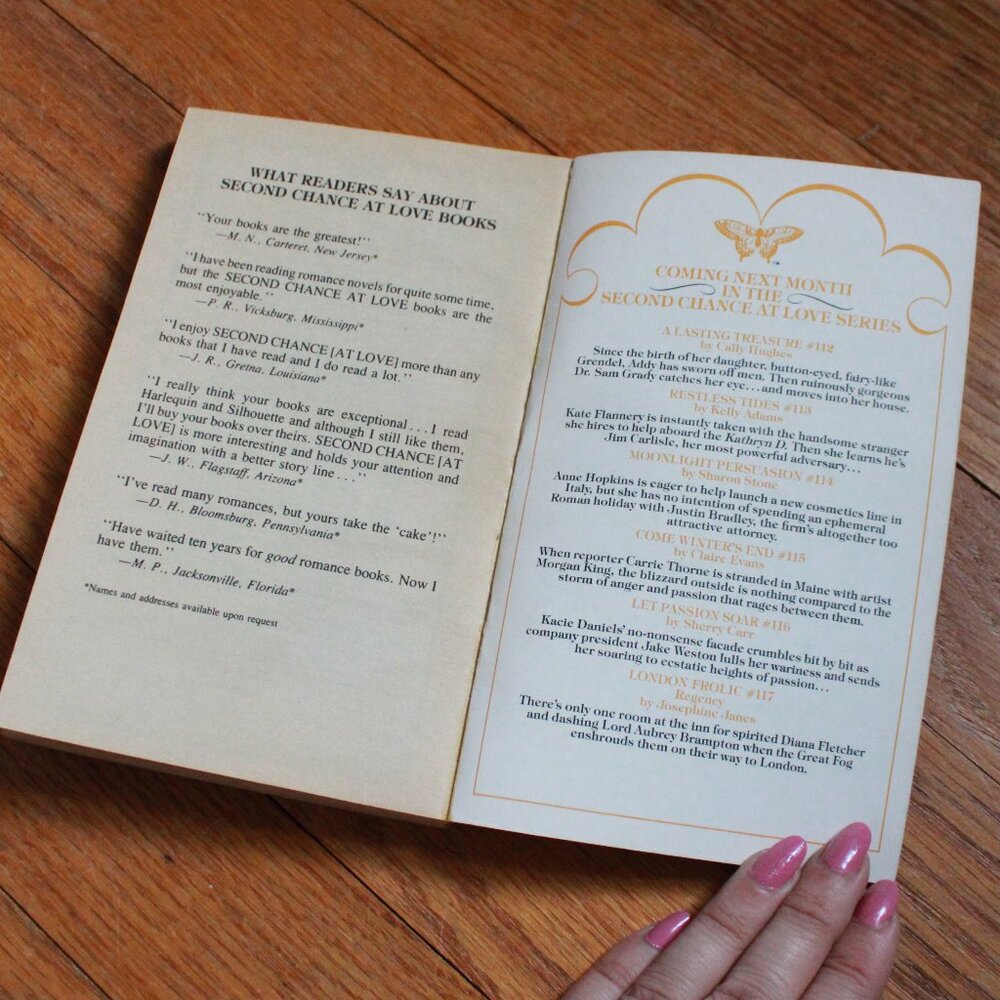 WHAT READERS SAY ABOUT
SECOND CHANCE AT LOVE BOOKS
"Your books are the greatest!"
—M. N., Carteret, New Jersey*
"I have been reading romance novels for quite some time,
but the SECOND CHANCE AT LOVE books are the
most enjoyable."
—P. R., Vicksburg, Mississippi*
"I enjoy SECOND CHANCE [AT LOVE] more than any
books that I have read and I do read a lot."
—J. R., Gretna, Louisiana*
"I really think your books are exceptional . . . I read
Harlequin and Silhouette and although I still like them,
I'll buy your books over theirs. SECOND CHANCE [AT
LOVE] is more interesting and holds your attention and
imagination with a better story line . . ."
—J. W., Flagstaff, Arizona*
"I've read many romances, but yours take the 'cake'!"
—D. H., Bloomsburg, Pennsylvania*
"Have waited ten years for good romance books. Now I
have them."
—M. P., Jacksonville, Florida*
*Names and addresses available upon request
TM
COMING NEXT MONTH
IN THE
SECOND CHANCE AT LOVE SERIES
A LASTING TREASURE #112
by Cally Hughes
Since the birth of her daughter, button-eyed, fairy-like
Grendel, Addy has sworn off men. Then ruinously gorgeous
Dr. Sam Grady catches her eye...and moves into her house.
RESTLESS TIDES #113
by Kelly Adams
Kate Flannery is instantly taken with the handsome stranger
she hires to help aboard the Kathryn D. Then she learns he's
Jim Carlisle, her most powerful adversary...
MOONLIGHT PERSUASION #114
by Sharon Stone
Anne Hopkins is eager to help launch a new cosmetics line in
Italy, but she has no intention of spending an ephemeral
Roman holiday with Justin Bradley, the firm's altogether too
attractive attorney.
COME WINTER'S END #115
by Claire Evans
When reporter Carrie Thorne is stranded in Maine with artist
Morgan King, the blizzard outside is nothing compared to the
storm of anger and passion that rages between them.
LET PASSION SOAR #116
by Sherry Carr
Kacie Daniels' no-nonsense facade crumbles bit by bit as
company president Jake Weston lulls her wariness and sends
her soaring to ecstatic heights of passion...
LONDON FROLIC #117
Regency
by Josephine Janes
There's only one room at the inn for spirited Diana Fletcher
and dashing Lord Aubrey Brampton when the Great Fog
enshrouds them on their way to London.